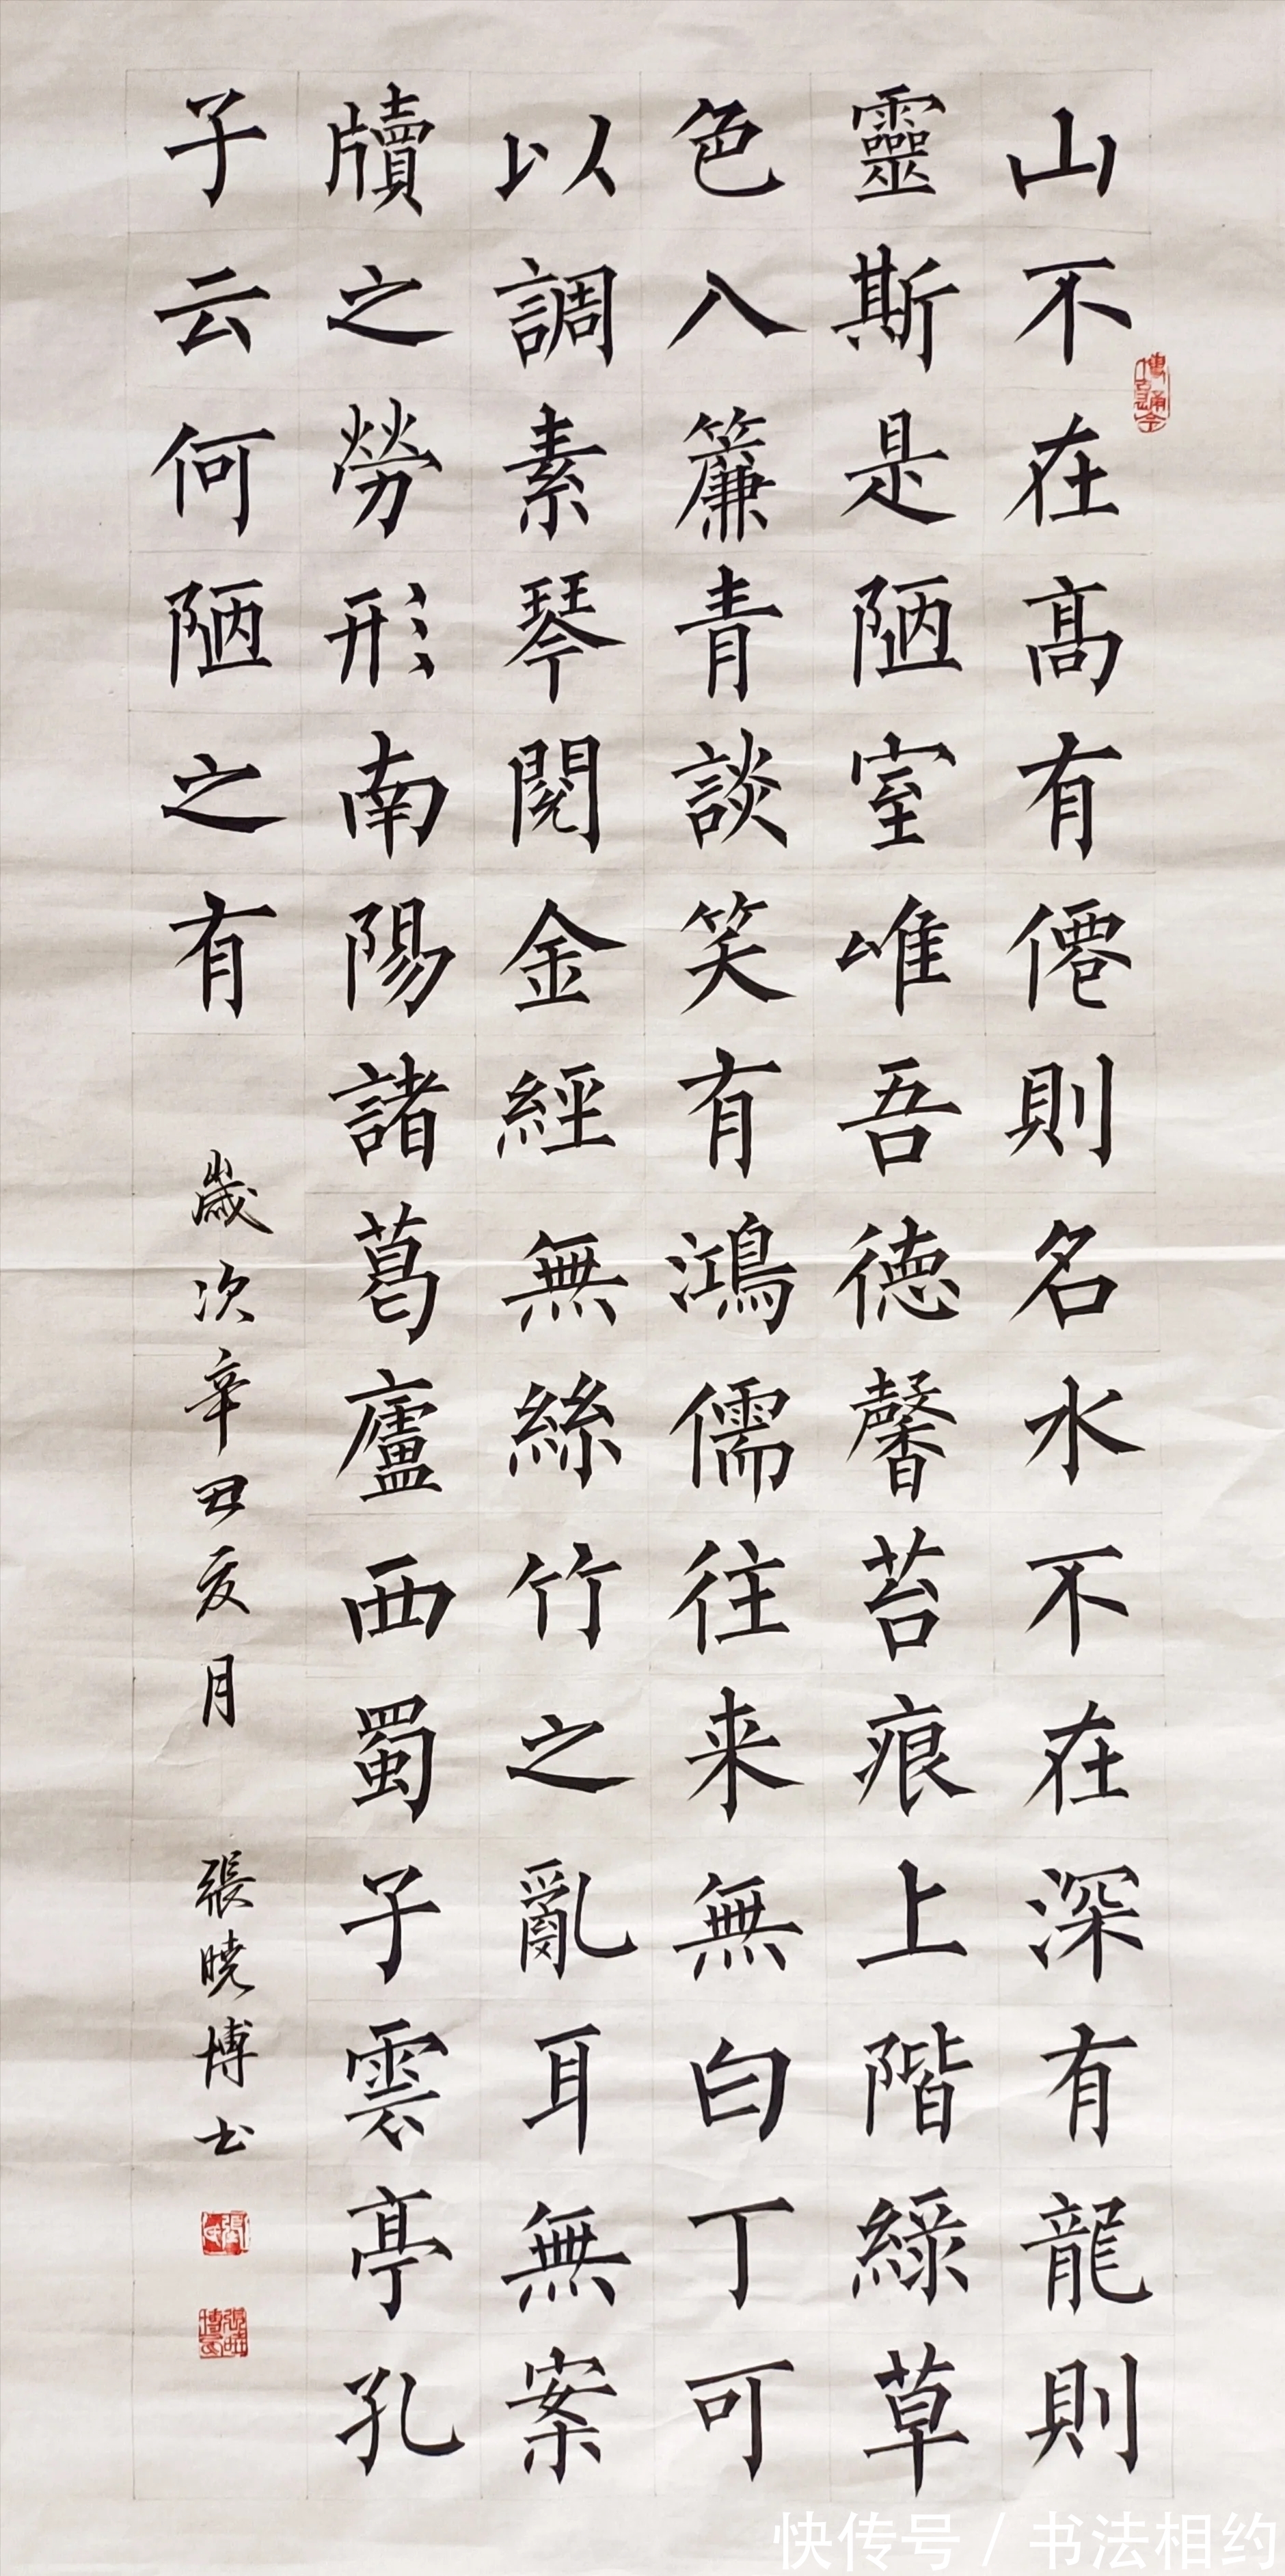 山不在髙有僊則名水不在深有龍則
靈斯是陋室唯吾徳馨苔痕上階綠草
色入簾青談笑有鴻儒往来無白丁可
以調素琴閲金經無絲竹之亂耳無案
牘之勞形南陽諸葛廬西蜀子雲亭孔
子云何陋之有
歲次辛丑亥月 張曉博书
快传号 / 书法相约